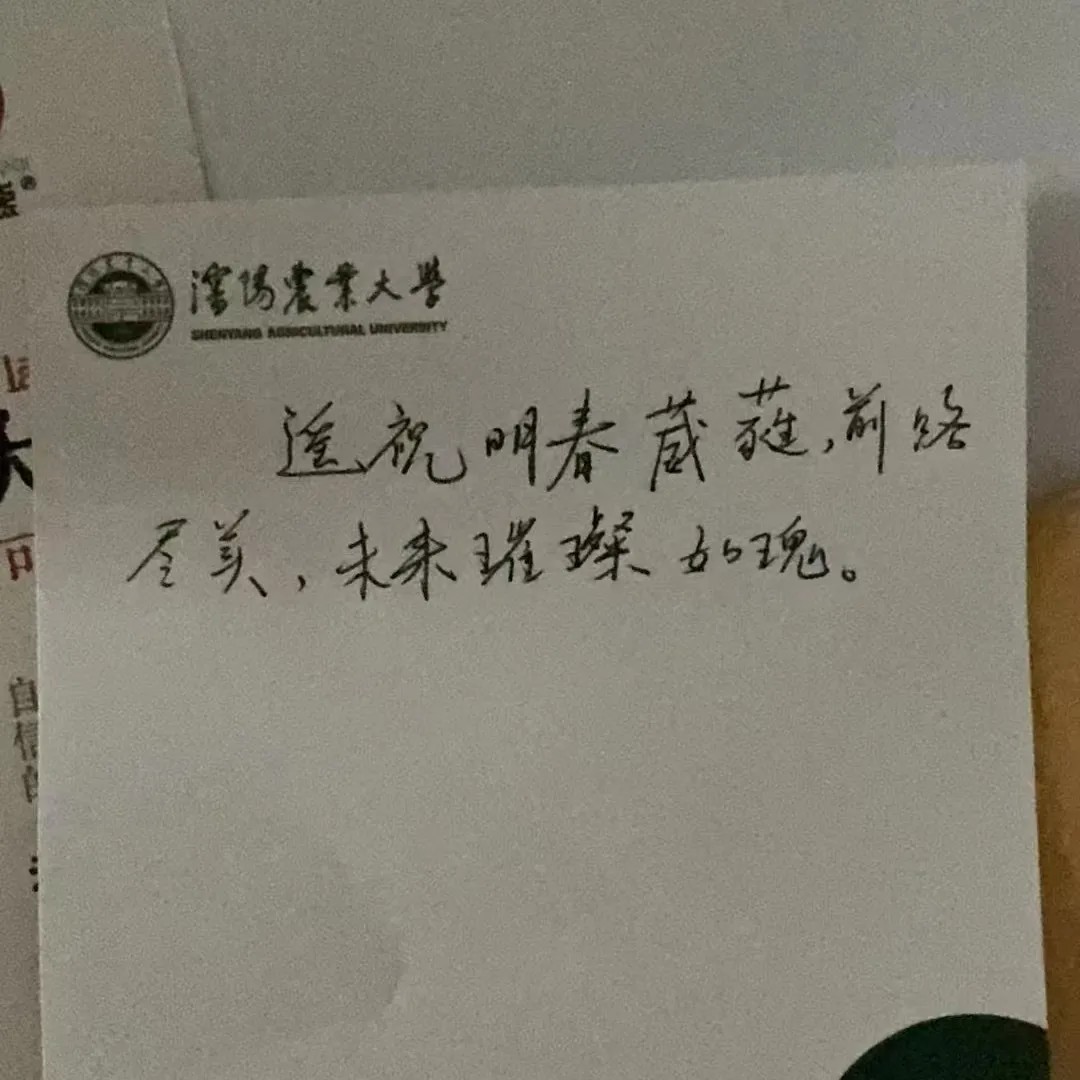 沈阳农业大学
SHENYANG AGRICULTURAL UNIVERSITY
遥祝明春葳蕤,前路
尽美,未来璀璨如瑰。
自信的